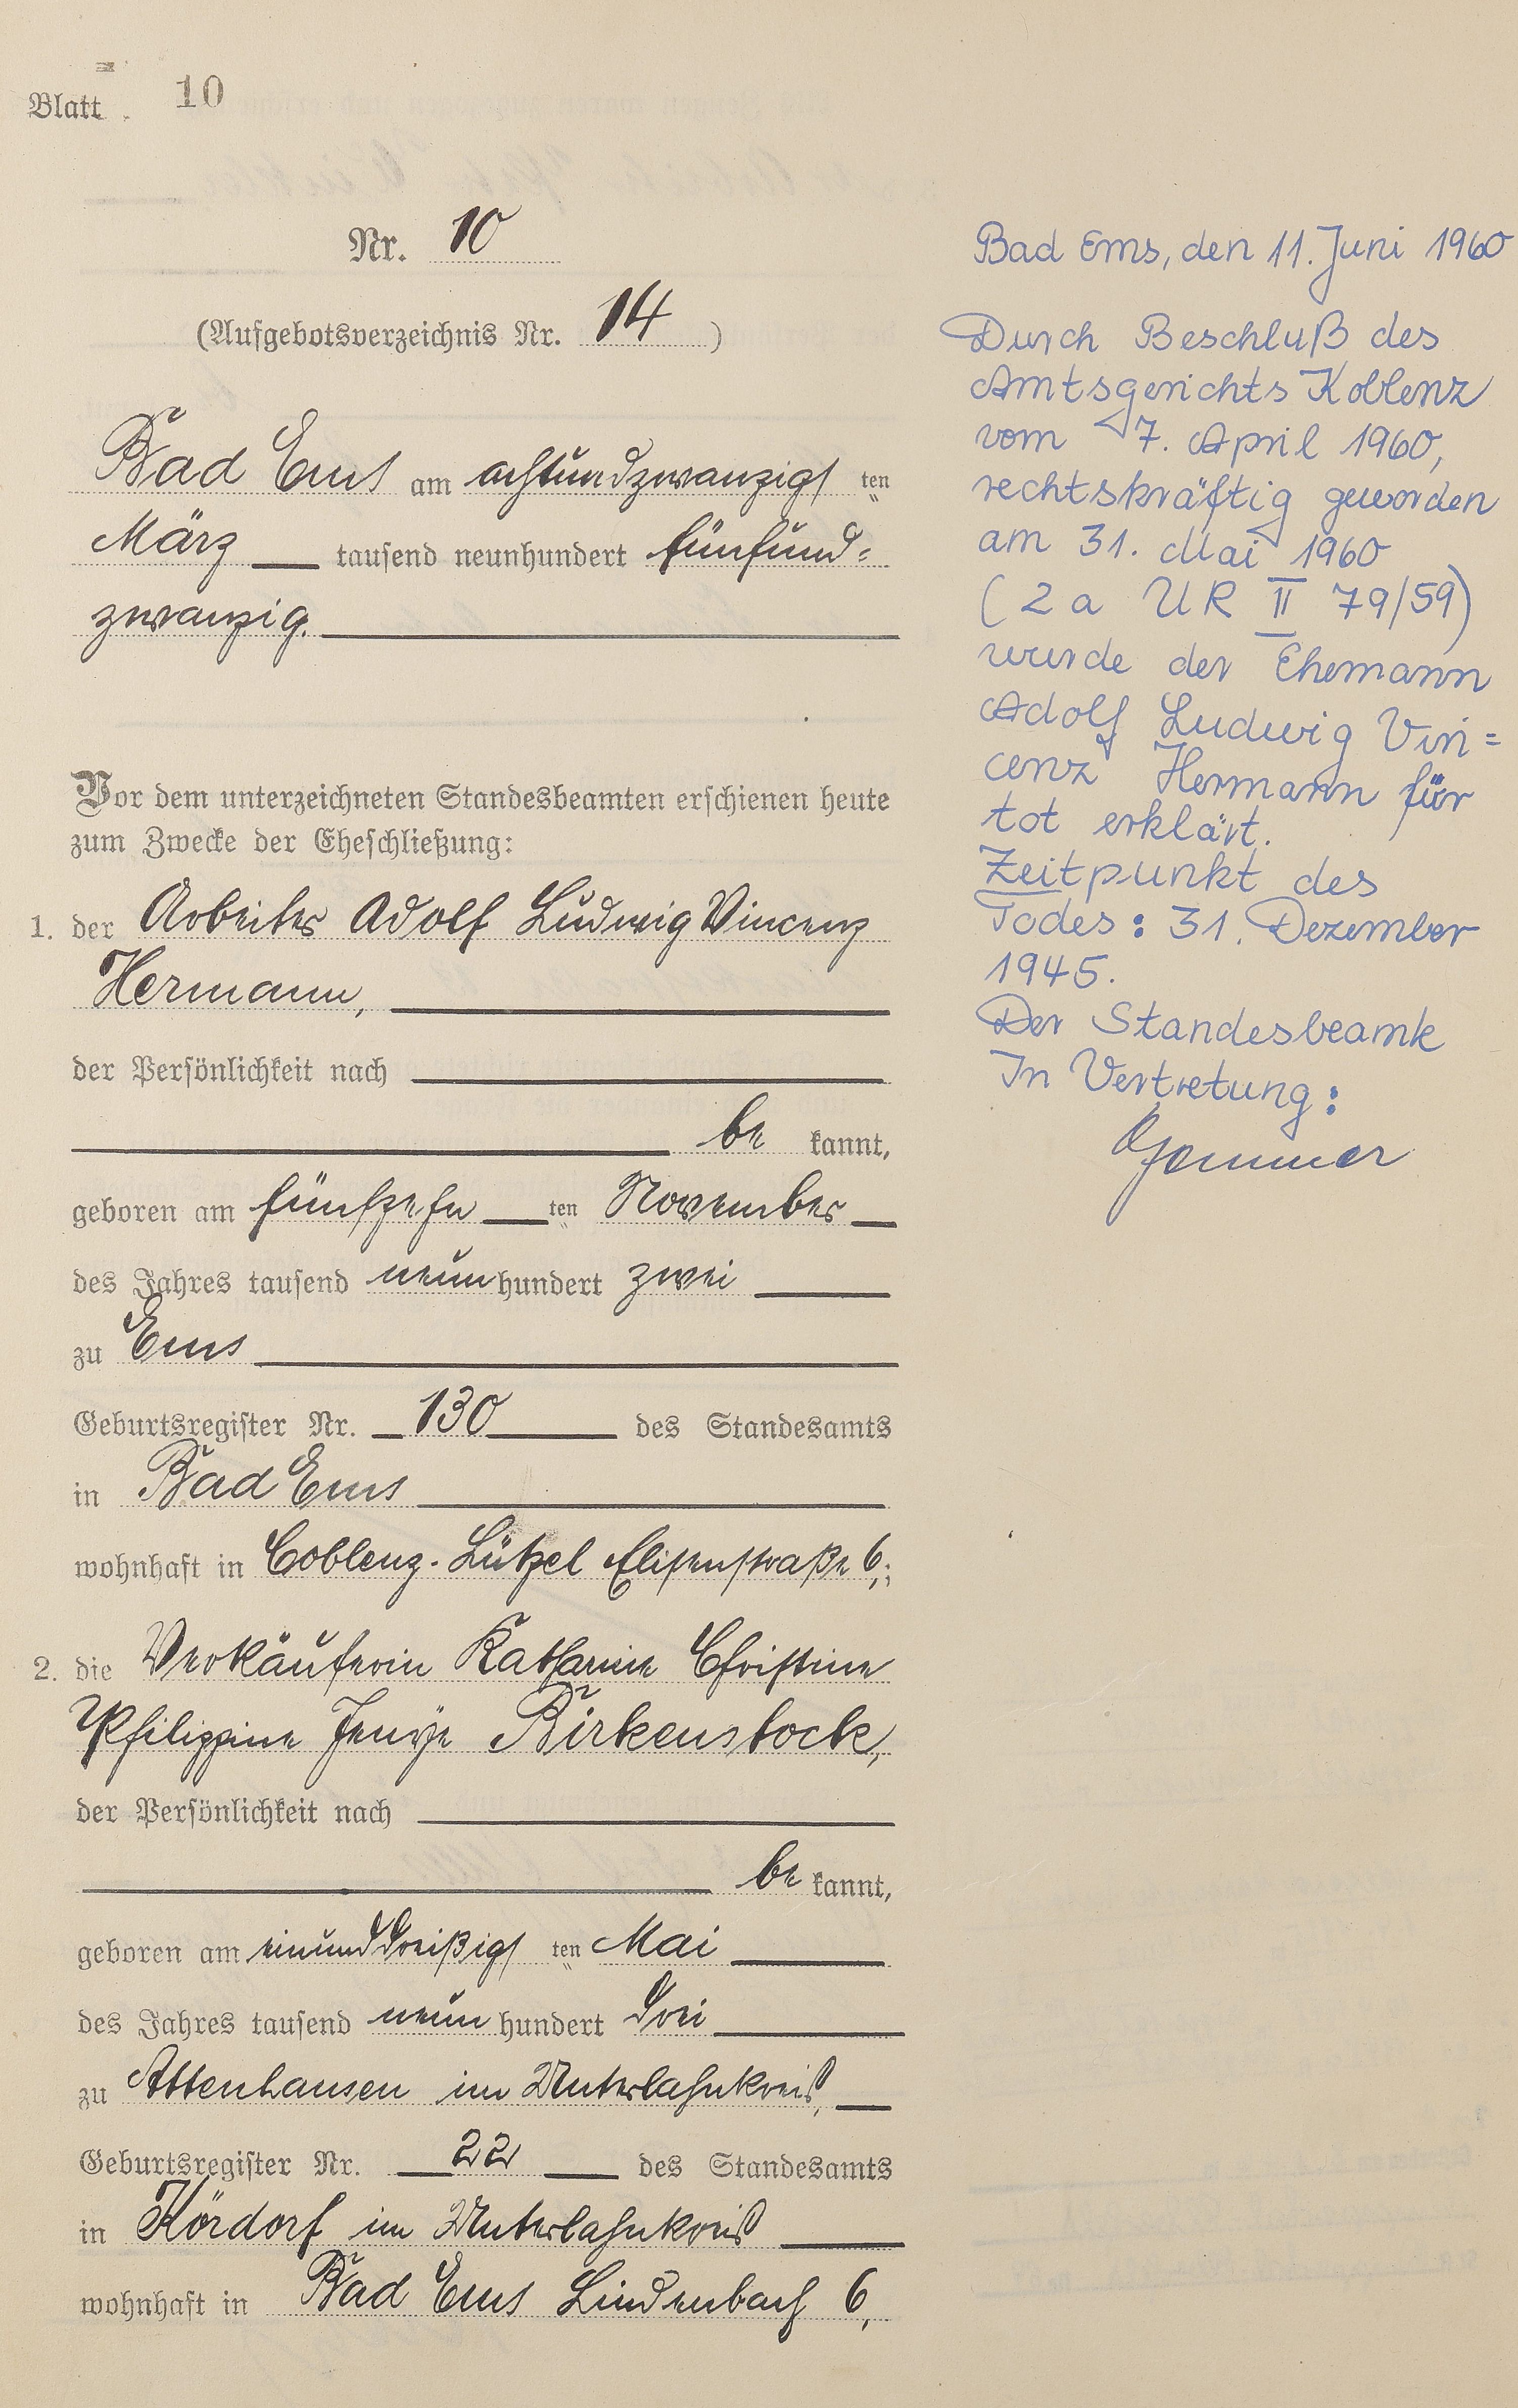 Blatt 10
Nr. 10
(Aufgebotsverzeichnis Nr. 14)
Bad Ems am achtundzwanzigs ten
März tausend neunhundert fünfund=
zwanzig.
Vor dem unterzeichneten Standesbeamten erschienen heute
zum Zwecke der Eheschließung:
1. der Arbeiter Adolf Ludwig Vincenz
Hermann,
der Persönlichkeit nach
be kannt,
geboren am fünfzehn ten November
des Jahres tausend neun hundert zwei
zu Ems
Geburtsregister Nr. 130 des Standesamts
in Bad Ems
wohnhaft in Coblenz-Lützel Elisenstraße 6;
2. die Verkäuferin Katharine Christine
Philippine Birkenstock,
der Persönlichkeit nach
be kannt,
geboren am einunddreißigs ten Mai
des Jahres tausend neun hundert drei
zu Attenhausen im Unterlahnkreis,
Geburtsregister Nr. 22 des Standesamts
in Kördorf im Unterlahnkreis
wohnhaft in Bad Ems Lindenbach 6,
Bad Ems, den 11. Juni 1960
Durch Beschluß des
Amtsgerichts Koblenz
vom 7. April 1960,
rechtskräftig geworden
am 31. Mai 1960
(2a UR II 79/59)
wurde der Ehemann
Adolf Ludwig Vin=
cenz Hermann für
tot erklärt.
Zeitpunkt des
Todes: 31. Dezember
1945.
Der Standesbeamte
In Vertretung: